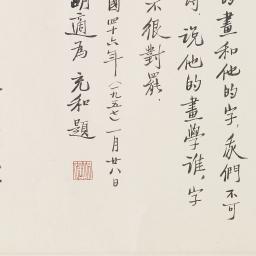 的畫和他的字,我們不可
時,說他的畫學誰,字
不很對罷.
國四十六年(一九五七)一月廿八日
胡適為 充和題